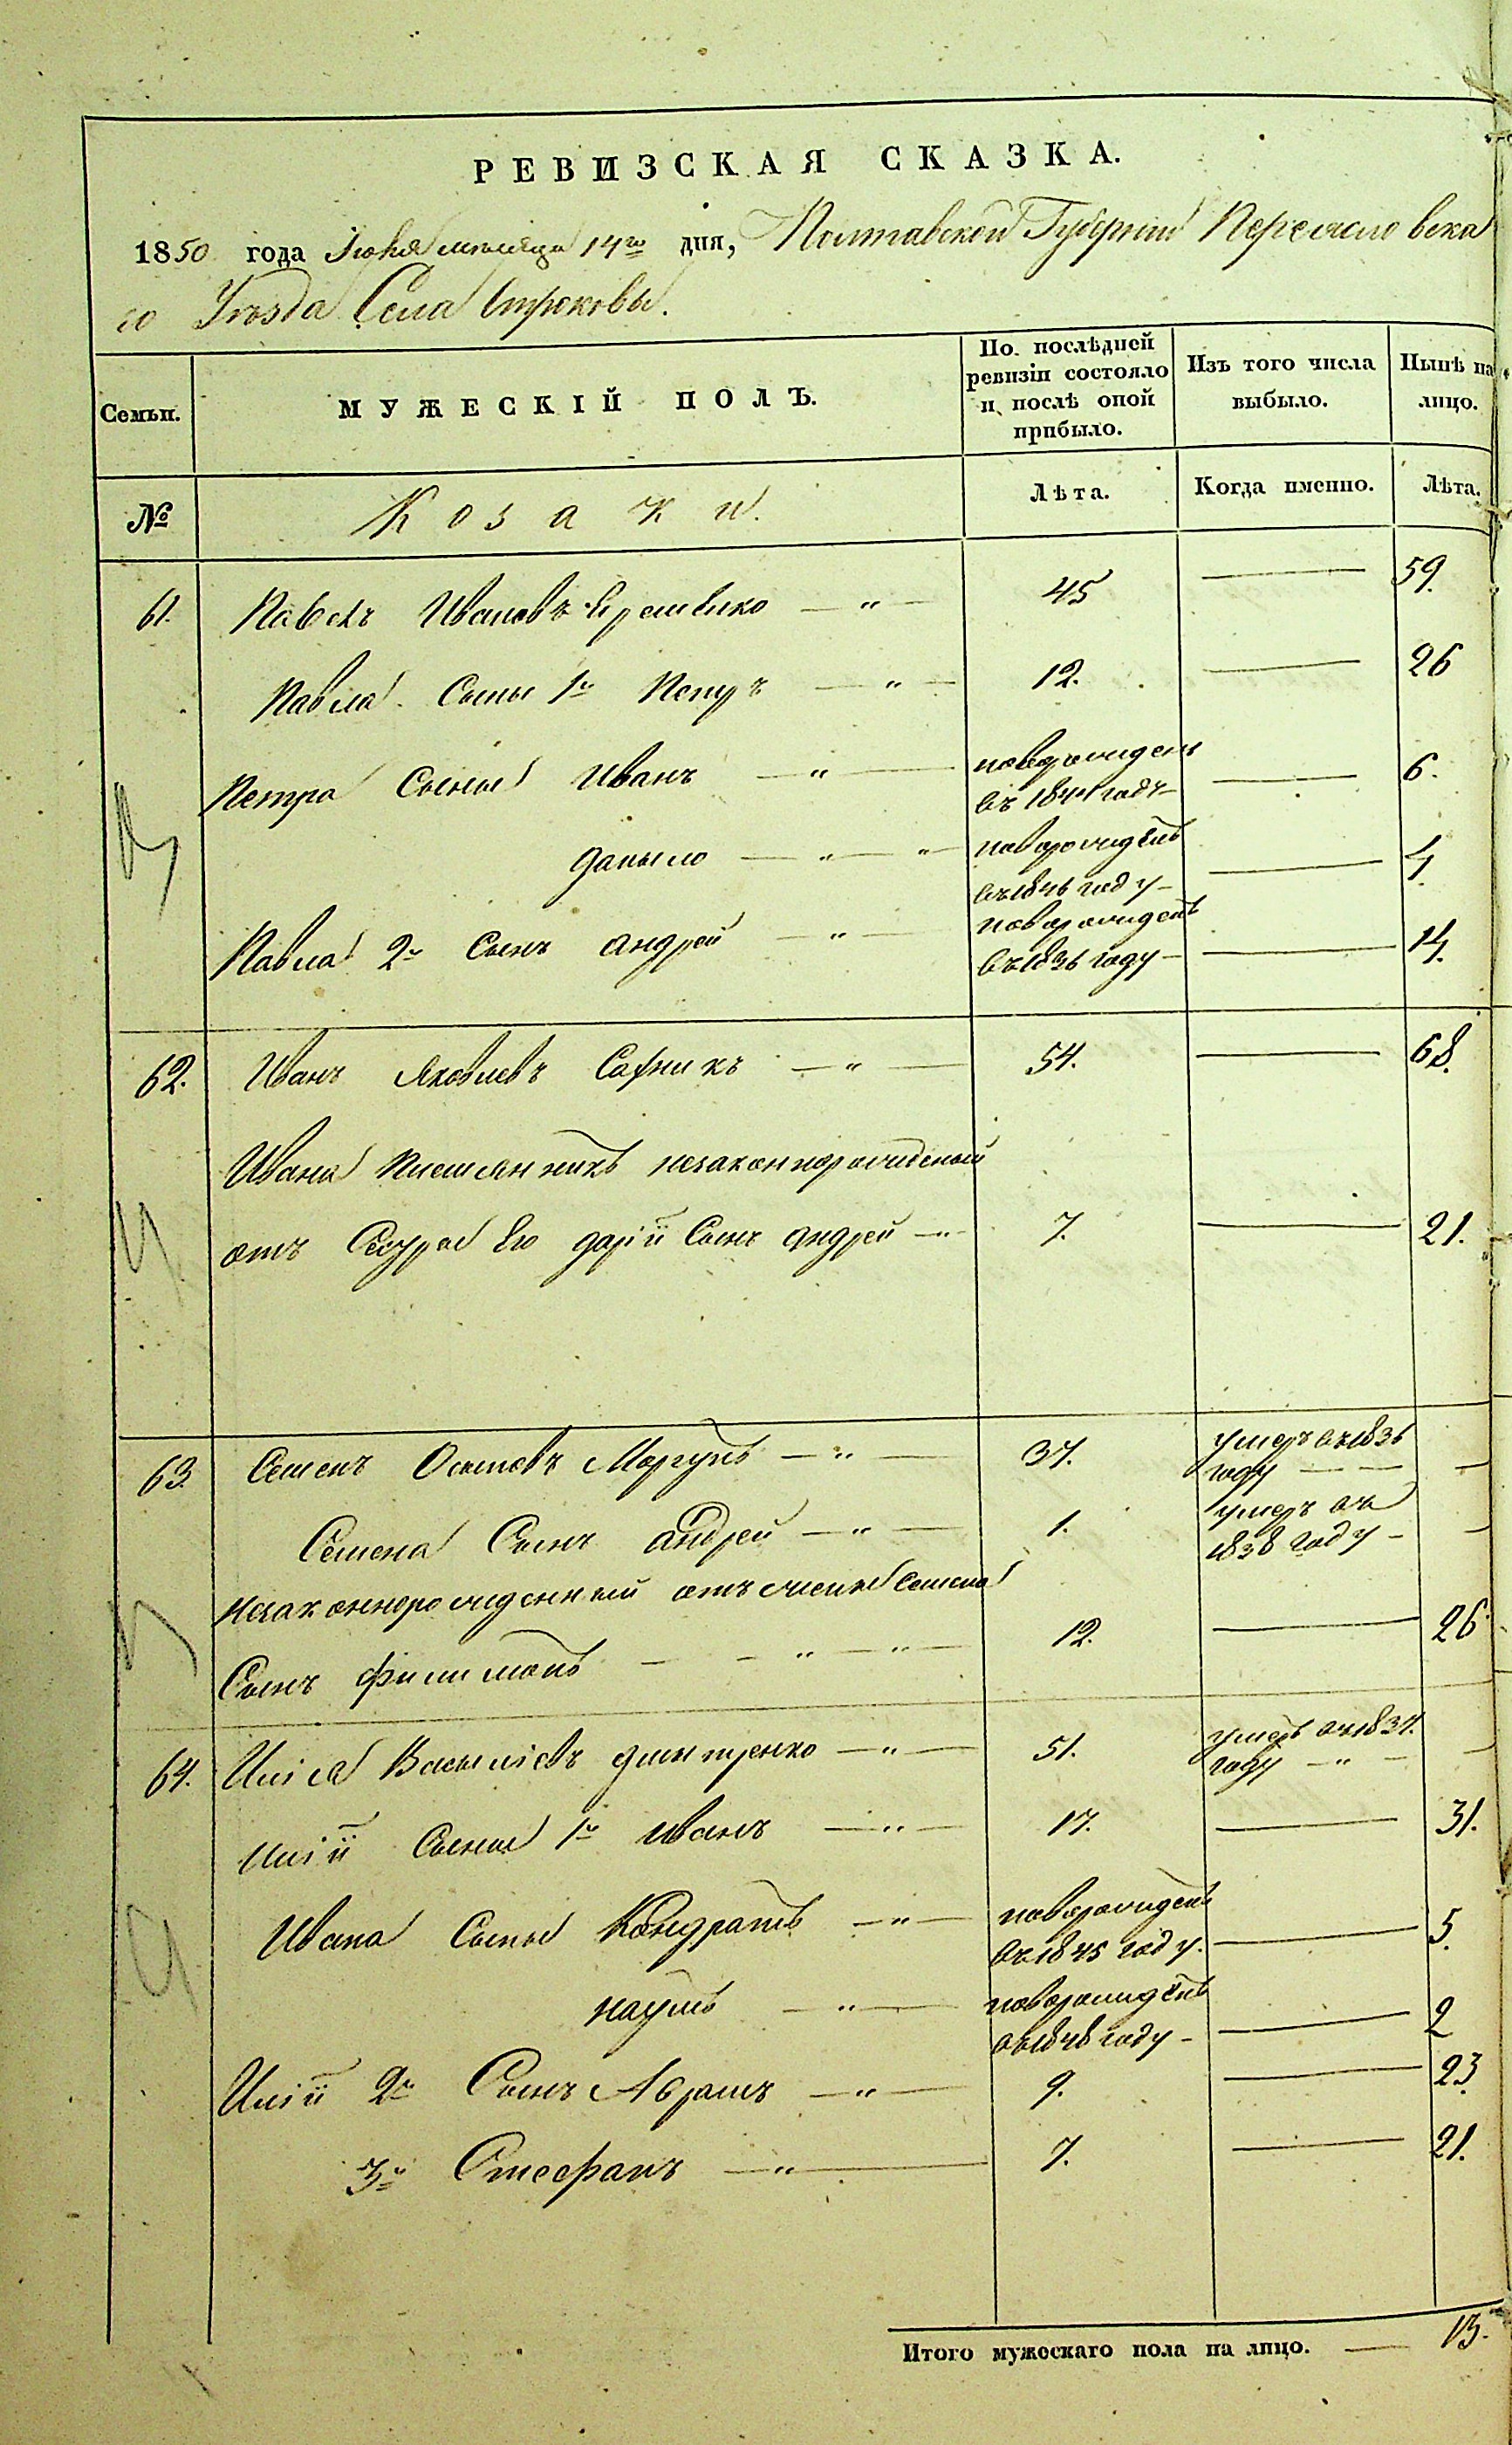 РЕВИЗСКАЯ СКАЗКА.
1850 года Июня месяца 14го дня, Полтавской Губернии Переяславска
го Уезда Села Строковы.
Семьи. МУЖЕСКІЙ ПОЛЪ. По послѣдней ревизіи состояло и послѣ оной прибыло. Изъ того числа выбыло. Нынѣ на лицо.
№ Козаки. Лѣта. Когда именно. Лѣта.
61. Павелъ Ивановъ — " — 45 — 59.
Павла Сыны 1й Петръ — " — 12. — 26
Петра Сыны Иванъ — " — новорожденъ въ 1844 году — 6.
Даныло — " — " — новорожденъ въ 1846 году — — 4.
Павла 2й Сынъ андрей — " — новорожденъ въ 1836 году — — 14.
62. Иванъ Яковлевъ — " — 54. — 68.
Ивана Племянникъ незаконнорожденный
отъ Сестры Его даріи Сынъ андрей — " — 7. — 21.
63. Семенъ Осиповъ Моргунъ — " — 37. умеръ въ 1836 году — — —
Семена Сынъ андрей — " — 1. умеръ въ 1838 году — —
Незаконнорожденный отъ жены Семена
Сынъ Филимонъ — — " — " — 12. — 26.
64. Илія Васыліевъ дмитренко — " — 51. умеръ въ 1834. году — " — —
Иліи Сыны 1й иванъ — " — 17. — 31.
Ивана Сыны Кондратъ — " — новорожденъ въ 1845 году. — 5.
наумъ — " — новорожденъ въ 1848 году — — 2
Иліи 2й Сынъ Абрамъ — " — 9. — 23.
3й Стефанъ — " — 7. — 21.
Итого мужескаго пола на лицо. — 13.